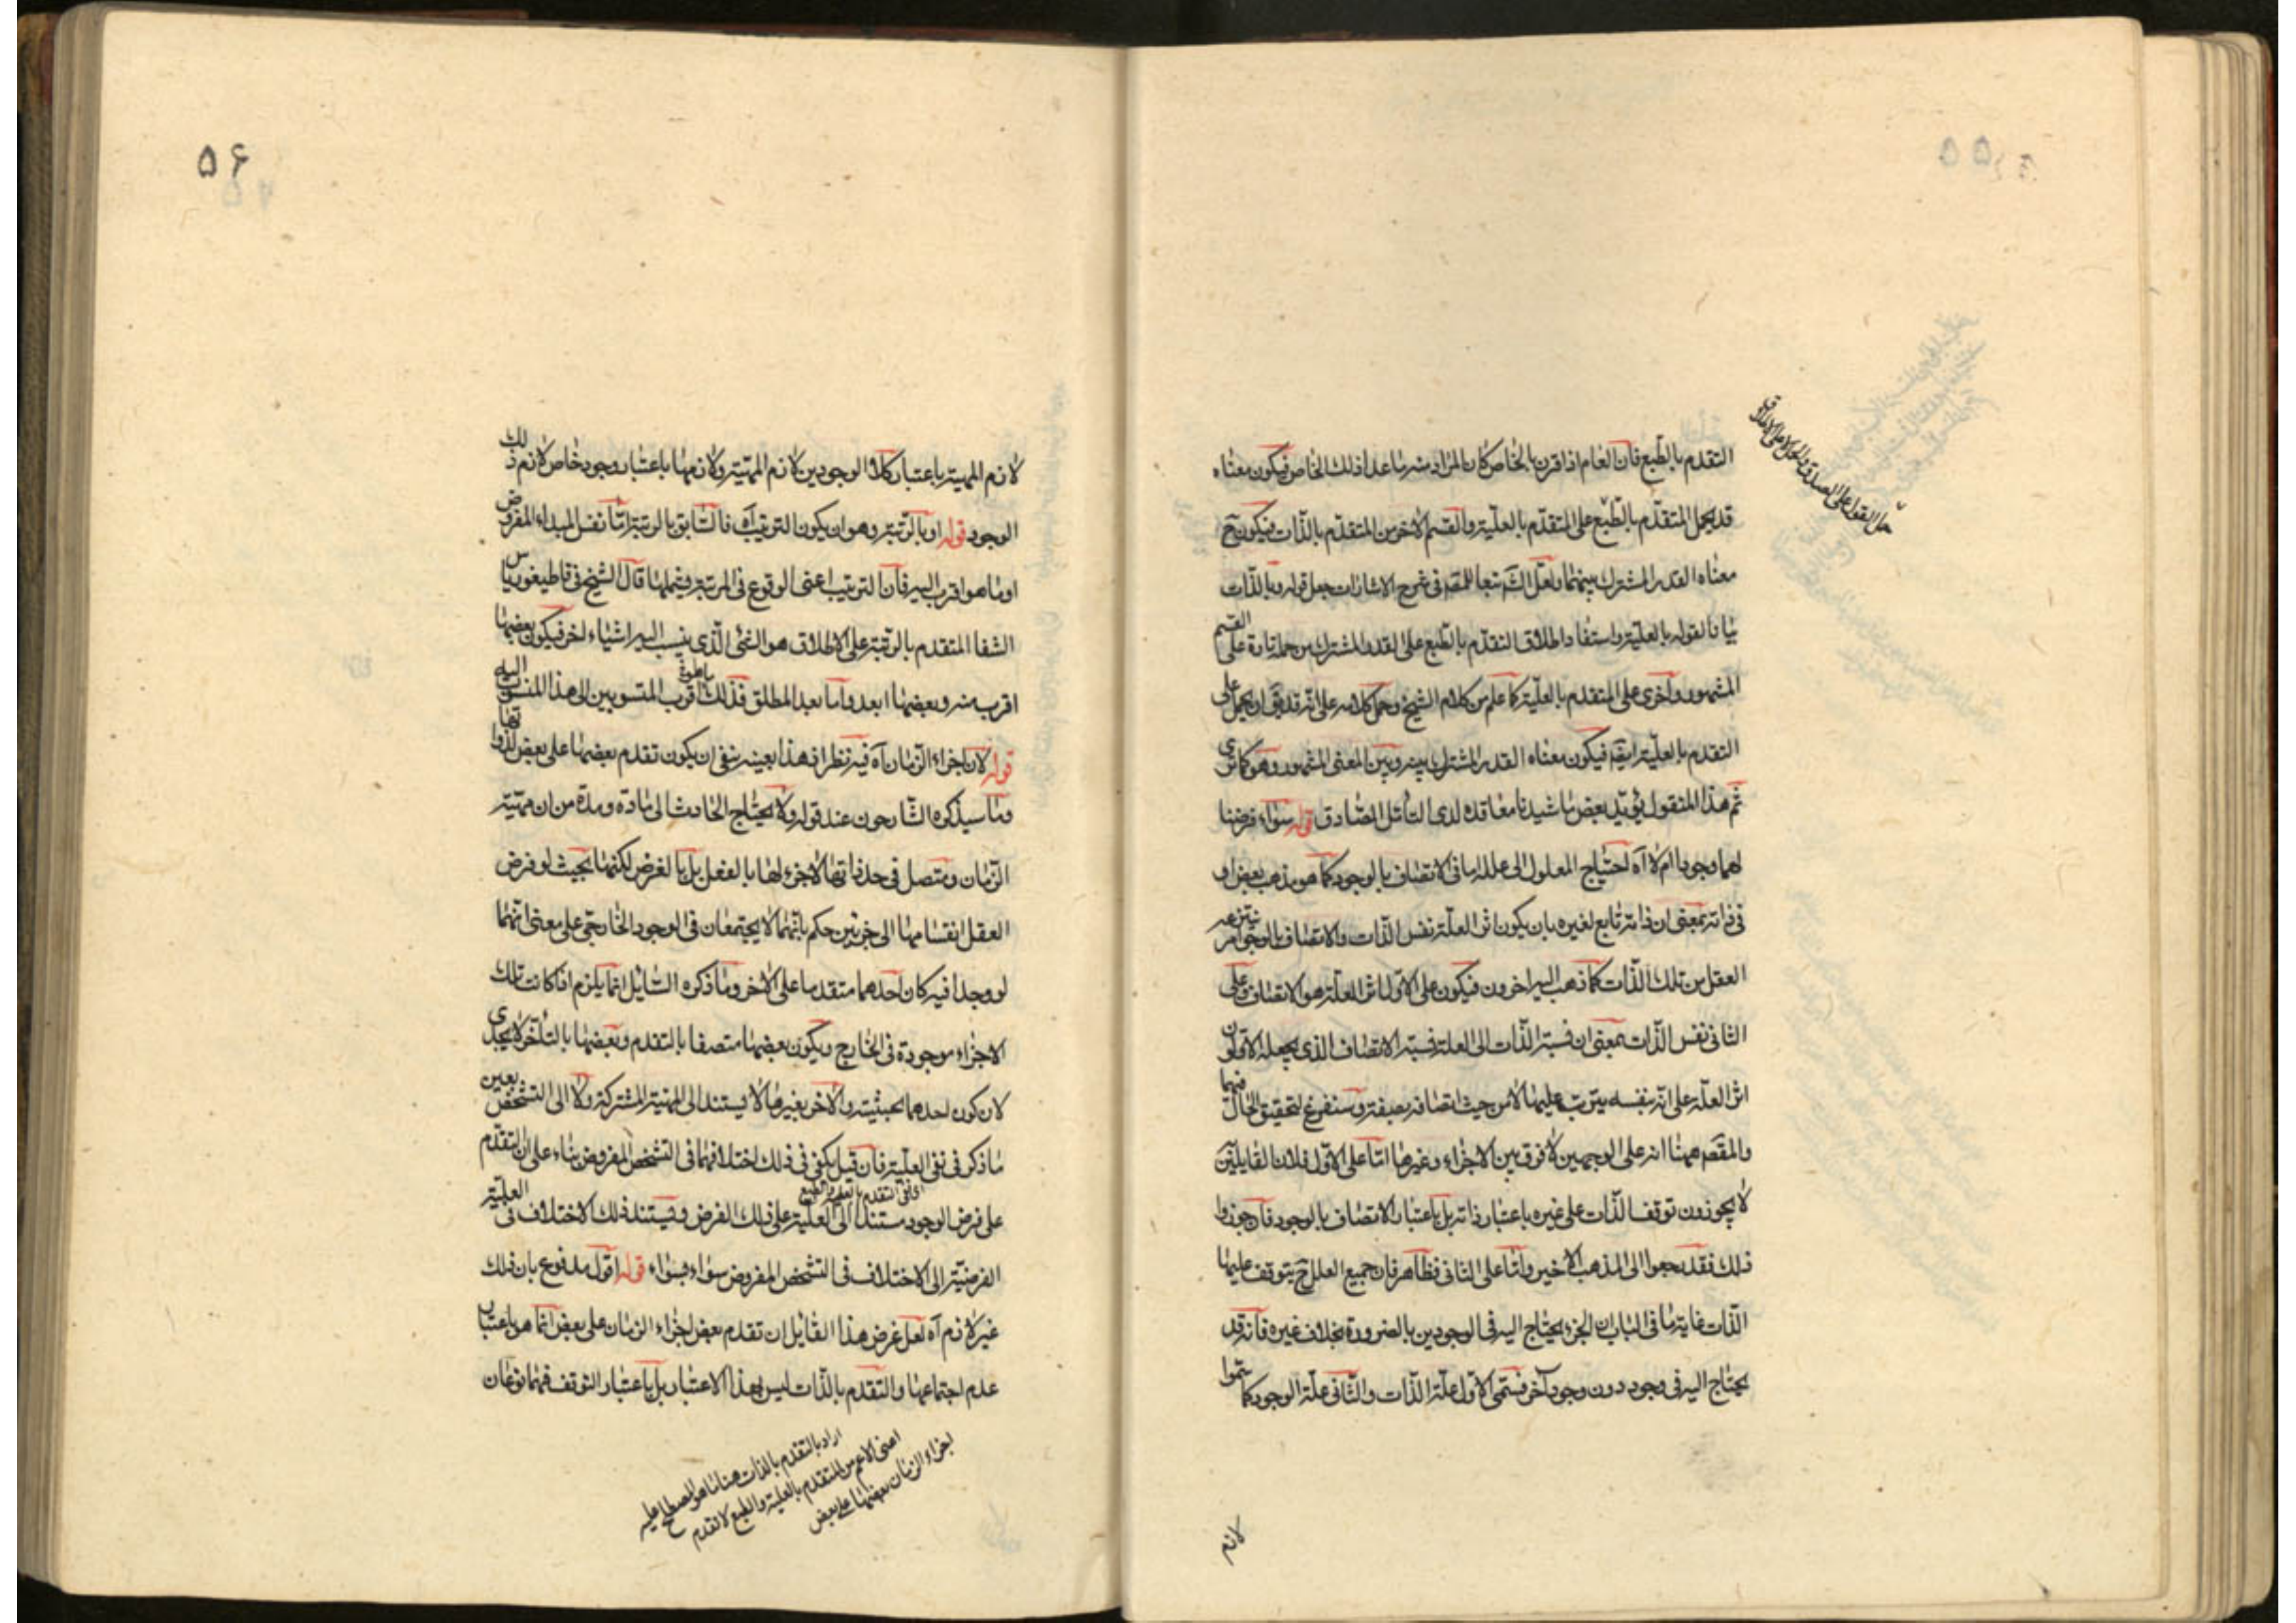 التقدم بالطبع فان العام اذا قرن بالخاص كان المراد منه ما عدا ذلك الخاص فيكون معناه
قد يحمل المتقدم بالطبع على المتقدم بالعلية والقسم الاخر من المتقدم بالذات فيكون ح
معناه القدر المشترك بينهما ولعل الش تبعا للمصه فى شرح الاشارات جعل قوله وبالذات
بيانا لقوله بالعلية واستفاد اطلاق التقدم بالطبع على القدر المشترك من حمله تارة على القسم
المشهور واخرى على المتقدم بالعلية كما علم من كلام الشيخ وحمل كلامه على انه قد يق او يحمل على
التقدم بالعلية ايضه فيكون معناه القدر المشترك بينه وبين المعنى المشهور وهو كما ترى
ثم هذا المنقول يؤيد بعض ما شيدنا معاقده لدى التامل الصادق قوله سواء فرضنا
لهما وجودا ام لا آه احتياج المعلول الى علله اما فى الاتصاف بالوجود كما هو مذهب بعض او
فى ذاته بمعنى ان ذاته تابع لغيره بان يكون اثر العلة نفس الذات والاتصاف بالوجود امر ينتزعه
العقل من تلك الذات كما ذهب اليه اخرون فيكون على الاول اثر العلة هو الاتصاف وعلى
الثانى نفس الذات بمعنى ان نسبة الذات الى العلة نسبة الاتصاف الذى يجعله الاولون
اثر العلة على انه بنفسه يترتب عليها لا من حيث اتصافه بصفة وسنفرغ لتحقيق الحال فيهما
والمقصه ههنا انه على الوجهين لا فرق بين الاجزاء وغيرها اما على الاول فلان القايلين
لا يجوزون توقف الذات على غيره باعتبار ذاته بل باعتبار الاتصاف بالوجود فان جوزوا
ذلك فقد رجعوا الى المذهب الاخير واما على الثانى فظاهر فان جميع العلل ح يتوقف عليها
الذات غاية ما فى الباب ان الجزء يحتاج اليه فى الوجودين بالضرورة بخلاف غيره فانه قد
يحتاج اليه فى وجود دون وجود آخر فسمى الاول علة الذات والثانى علة الوجود كما سموا
لازم
۵۶
لازم المهية باعتبار كلا الوجودين لازم المهية ولازمها باعتبار وجود خاص لازم ذلك
الوجود قوله او بالرتبة وهو ان يكون الترتيب آه فالسابق بالرتبة اما نفس المبداء المفروض
او ما هو اقرب اليه فان الترتيب اعنى الوقوع فى المرتبة يشملها قال الشيخ فى قاطيغورياس
الشفا المتقدم بالرتبة على الاطلاق هو الشئ الذى ينسب اليه اشياء اخر فيكون بعضها
اقرب منه وبعضها ابعد واما بعد المطلق فذلك ما هو اقرب المنسوبين الى هذا المنسوب اليه
قوله لان اجزاء الزمان آه فيه نظر اذ هذا بعينه ينفى ان يكون تقدم بعضها على بعض لذواتها
وما سيذكره الشارحون عند قوله ولا يحتاج الحادث الى مادة ومدة من ان مهية
الزمان متصل فى حد ذاتها لا جزء لها بالفعل بل بالفرض لكنها بحيث لو فرض
العقل انقسامها الى جزئين حكم بانهما لا يجتمعان فى الوجود الخارجى على معنى انهما
لو وجدا فيه كان احدهما متقدما على الاخر وما ذكره السايل انما يلزم اذا كانت تلك
الاجزاء موجودة فى الخارج ويكون بعضها متصفا بالتقدم وبعضها بالتاخر لا يجدى
لان كون احدهما بحيثية والاخر بغيرها لا يستند الى المهية المشتركة ولا الى التشخص بعين
ما ذكر فى نفى العلية فان قيل يكفى فى ذلك اختلافهما فى التشخص المفروض بناء على ان التقدم
على فرض الوجود مستند الى العلية على ذلك الفرض ويستند ذلك الاختلاف فى العلية
الفرضية الى الاختلاف فى التشخص المفروض سواء بسواء قوله اقول مدفوع بان ذلك
غير لازم آه لعل غرض هذا القايل ان تقدم بعض اجزاء الزمان على بعض انما هو باعتبار
عدم اجتماعها والتقدم بالذات ليس بهذا الاعتبار بل باعتبار التوقف فهما نوعان
اراد بالتقدم بالذات هنا ما هو المصطلح عليه
اعنى الاعم من المتقدم بالعلية والطبع لا تقدم
اجزاء الزمان بعضها على بعض